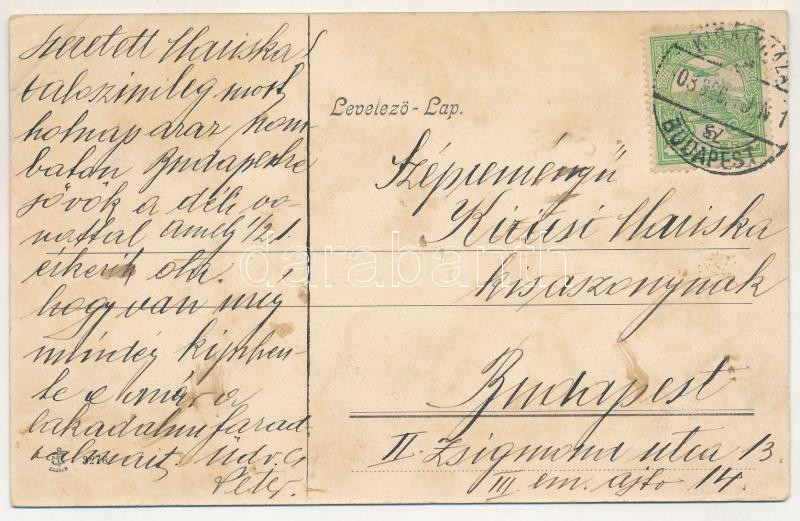 Szeretett Mariska!
valoszinüleg most
holnap azaz szom-
baton Budapestre
jövök a déli vo-
nattal amely 1/2 1
érkezik oda.
hogy van még
mindég kipihen-
te e már a
lakadalmi farad-
Üdv. G
Péter.
3276
ZAGREB
Levelező - Lap.
BUDAPEST
Szépreményü
Mariska
kisaszonynak
Budapest
II Zsigmond utca 13.
III em. ajto 14.
darabanth